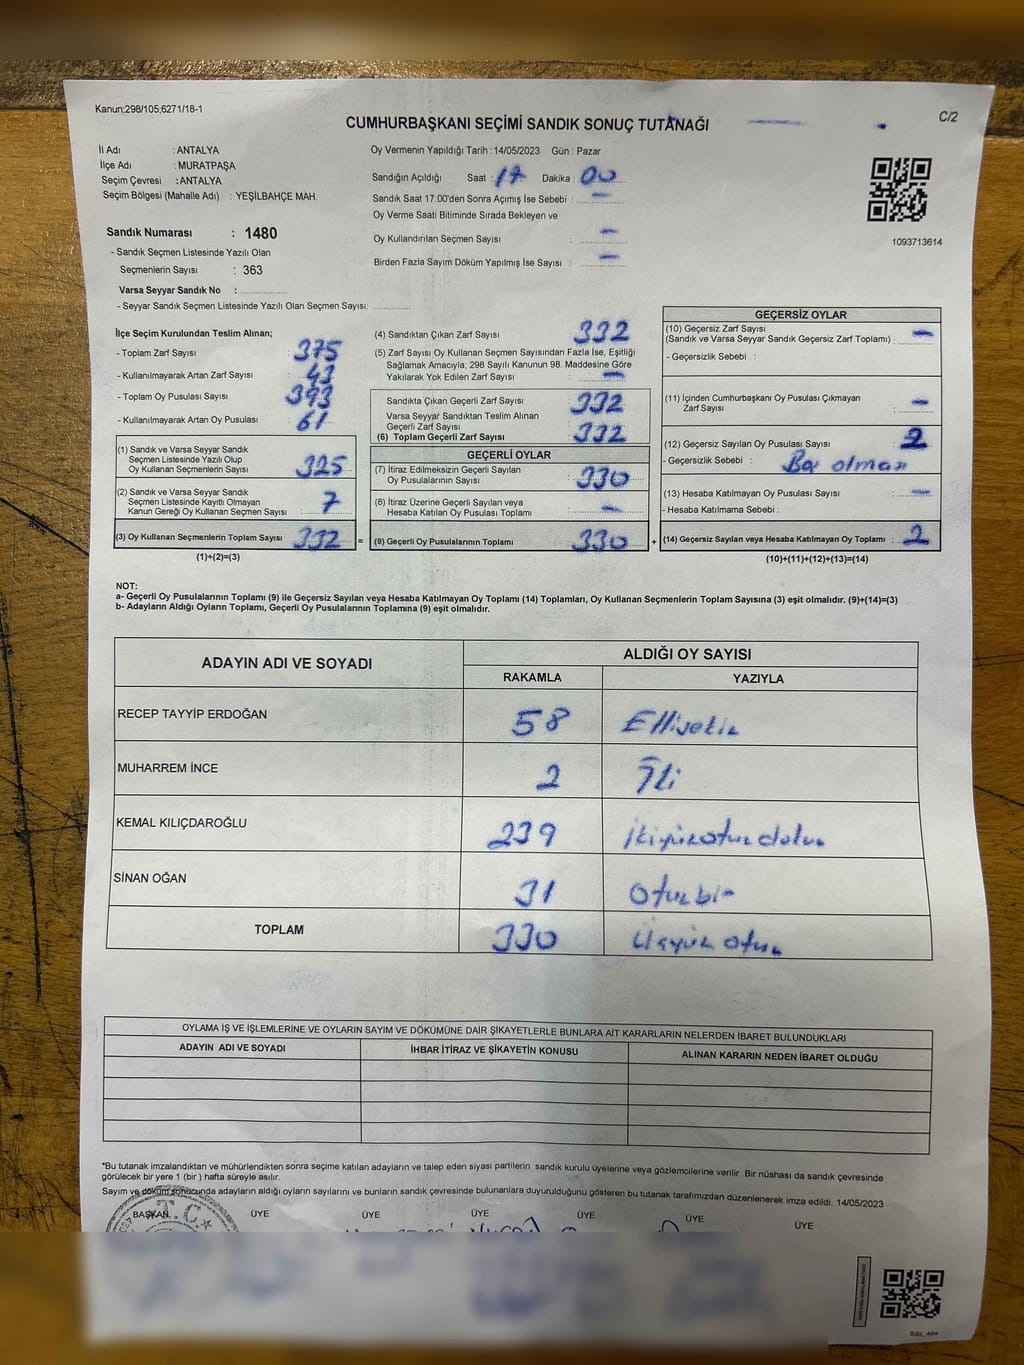 Kanun;298/105;6271/18-1
C/2
CUMHURBAŞKANI SEÇİMİ SANDIK SONUÇ TUTANAĞI
İl Adı : ANTALYA
İlçe Adı : MURATPAŞA
Seçim Çevresi : ANTALYA
Seçim Bölgesi (Mahalle Adı) : YEŞİLBAHÇE MAH.
Sandık Numarası : 1480
- Sandık Seçmen Listesinde Yazılı Olan
Seçmenlerin Sayısı : 363
Varsa Seyyar Sandık No : ..............
- Seyyar Sandık Seçmen Listesinde Yazılı Olan Seçmen Sayısı: ............
Oy Vermenin Yapıldığı Tarih : 14/05/2023 Gün : Pazar
Sandığın Açıldığı Saat : 17 Dakika : 00
Sandık Saat 17:00'den Sonra Açımış İse Sebebi : -
Oy Verme Saati Bitiminde Sırada Bekleyen ve
Oy Kullandırılan Seçmen Sayısı : -
Birden Fazla Sayım Döküm Yapılmış İse Sayısı : -
1093713614
İlçe Seçim Kurulundan Teslim Alınan;
- Toplam Zarf Sayısı : 375
- Kullanılmayarak Artan Zarf Sayısı : 43
- Toplam Oy Pusulası Sayısı : 393
- Kullanılmayarak Artan Oy Pusulası : 61
(1) Sandık ve Varsa Seyyar Sandık
Seçmen Listesinde Yazılı Olup
Oy Kullanan Seçmenlerin Sayısı : 325
(2) Sandık ve Varsa Seyyar Sandık
Seçmen Listesinde Kayıtlı Olmayan
Kanun Gereği Oy Kullanan Seçmen Sayısı : 7
(3) Oy Kullanan Seçmenlerin Toplam Sayısı : 332 =
(1)+(2)=(3)
(4) Sandıktan Çıkan Zarf Sayısı : 332
(5) Zarf Sayısı Oy Kullanan Seçmen Sayısından Fazla İse, Eşitliği
Sağlamak Amacıyla; 298 Sayılı Kanunun 98. Maddesine Göre
Yakılarak Yok Edilen Zarf Sayısı : -
Sandıkta Çıkan Geçerli Zarf Sayısı : 332
Varsa Seyyar Sandıktan Teslim Alınan
Geçerli Zarf Sayısı :
(6) Toplam Geçerli Zarf Sayısı : 332
GEÇERLİ OYLAR
(7) İtiraz Edilmeksizin Geçerli Sayılan
Oy Pusulalarının Sayısı : 330
(8) İtiraz Üzerine Geçerli Sayılan veya
Hesaba Katılan Oy Pusulası Toplamı : -
(9) Geçerli Oy Pusulalarının Toplamı : 330 +
GEÇERSİZ OYLAR
(10) Geçersiz Zarf Sayısı
(Sandık ve Varsa Seyyar Sandık Geçersiz Zarf Toplamı) : -
- Geçersizlik Sebebi :
(11) İçinden Cumhurbaşkanı Oy Pusulası Çıkmayan
Zarf Sayısı : -
(12) Geçersiz Sayılan Oy Pusulası Sayısı : 2
- Geçersizlik Sebebi : Boş olması
(13) Hesaba Katılmayan Oy Pusulası Sayısı : -
- Hesaba Katılmama Sebebi :
(14) Geçersiz Sayılan veya Hesaba Katılmayan Oy Toplamı : 2
(10)+(11)+(12)+(13)=(14)
NOT:
a- Geçerli Oy Pusulalarının Toplamı (9) ile Geçersiz Sayılan veya Hesaba Katılmayan Oy Toplamı (14) Toplamları, Oy Kullanan Seçmenlerin Toplam Sayısına (3) eşit olmalıdır. (9)+(14)=(3)
b- Adayların Aldığı Oyların Toplamı, Geçerli Oy Pusulalarının Toplamına (9) eşit olmalıdır.
ADAYIN ADI VE SOYADI
ALDIĞI OY SAYISI
RAKAMLA YAZIYLA
RECEP TAYYİP ERDOĞAN 58 Ellisekiz
MUHARREM İNCE 2 İki
KEMAL KILIÇDAROĞLU 239 ikiyüzotuz dokuz
SİNAN OĞAN 31 otuzbir
TOPLAM 330 üçyüz otuz
OYLAMA İŞ VE İŞLEMLERİNE VE OYLARIN SAYIM VE DÖKÜMÜNE DAİR ŞİKAYETLERLE BUNLARA AİT KARARLARIN NELERDEN İBARET BULUNDUKLARI
ADAYIN ADI VE SOYADI İHBAR İTİRAZ VE ŞİKAYETİN KONUSU ALINAN KARARIN NEDEN İBARET OLDUĞU
*Bu tutanak imzalandıktan ve mühürlendikten sonra seçime katılan adayların ve talep eden siyasi partilerin sandık kurulu üyelerine veya gözlemcilerine verilir. Bir nüshası da sandık çevresinde
görülecek bir yere 1 (bir ) hafta süreyle asılır.
Sayım ve döküm sonucunda adayların aldığı oyların sayılarını ve bunların sandık çevresinde bulunanlara duyurulduğunu gösteren bu tutanak tarafımızdan düzenlenerek imza edildi. 14/05/2023
BAŞKAN ÜYE ÜYE ÜYE ÜYE ÜYE ÜYE
T.C.